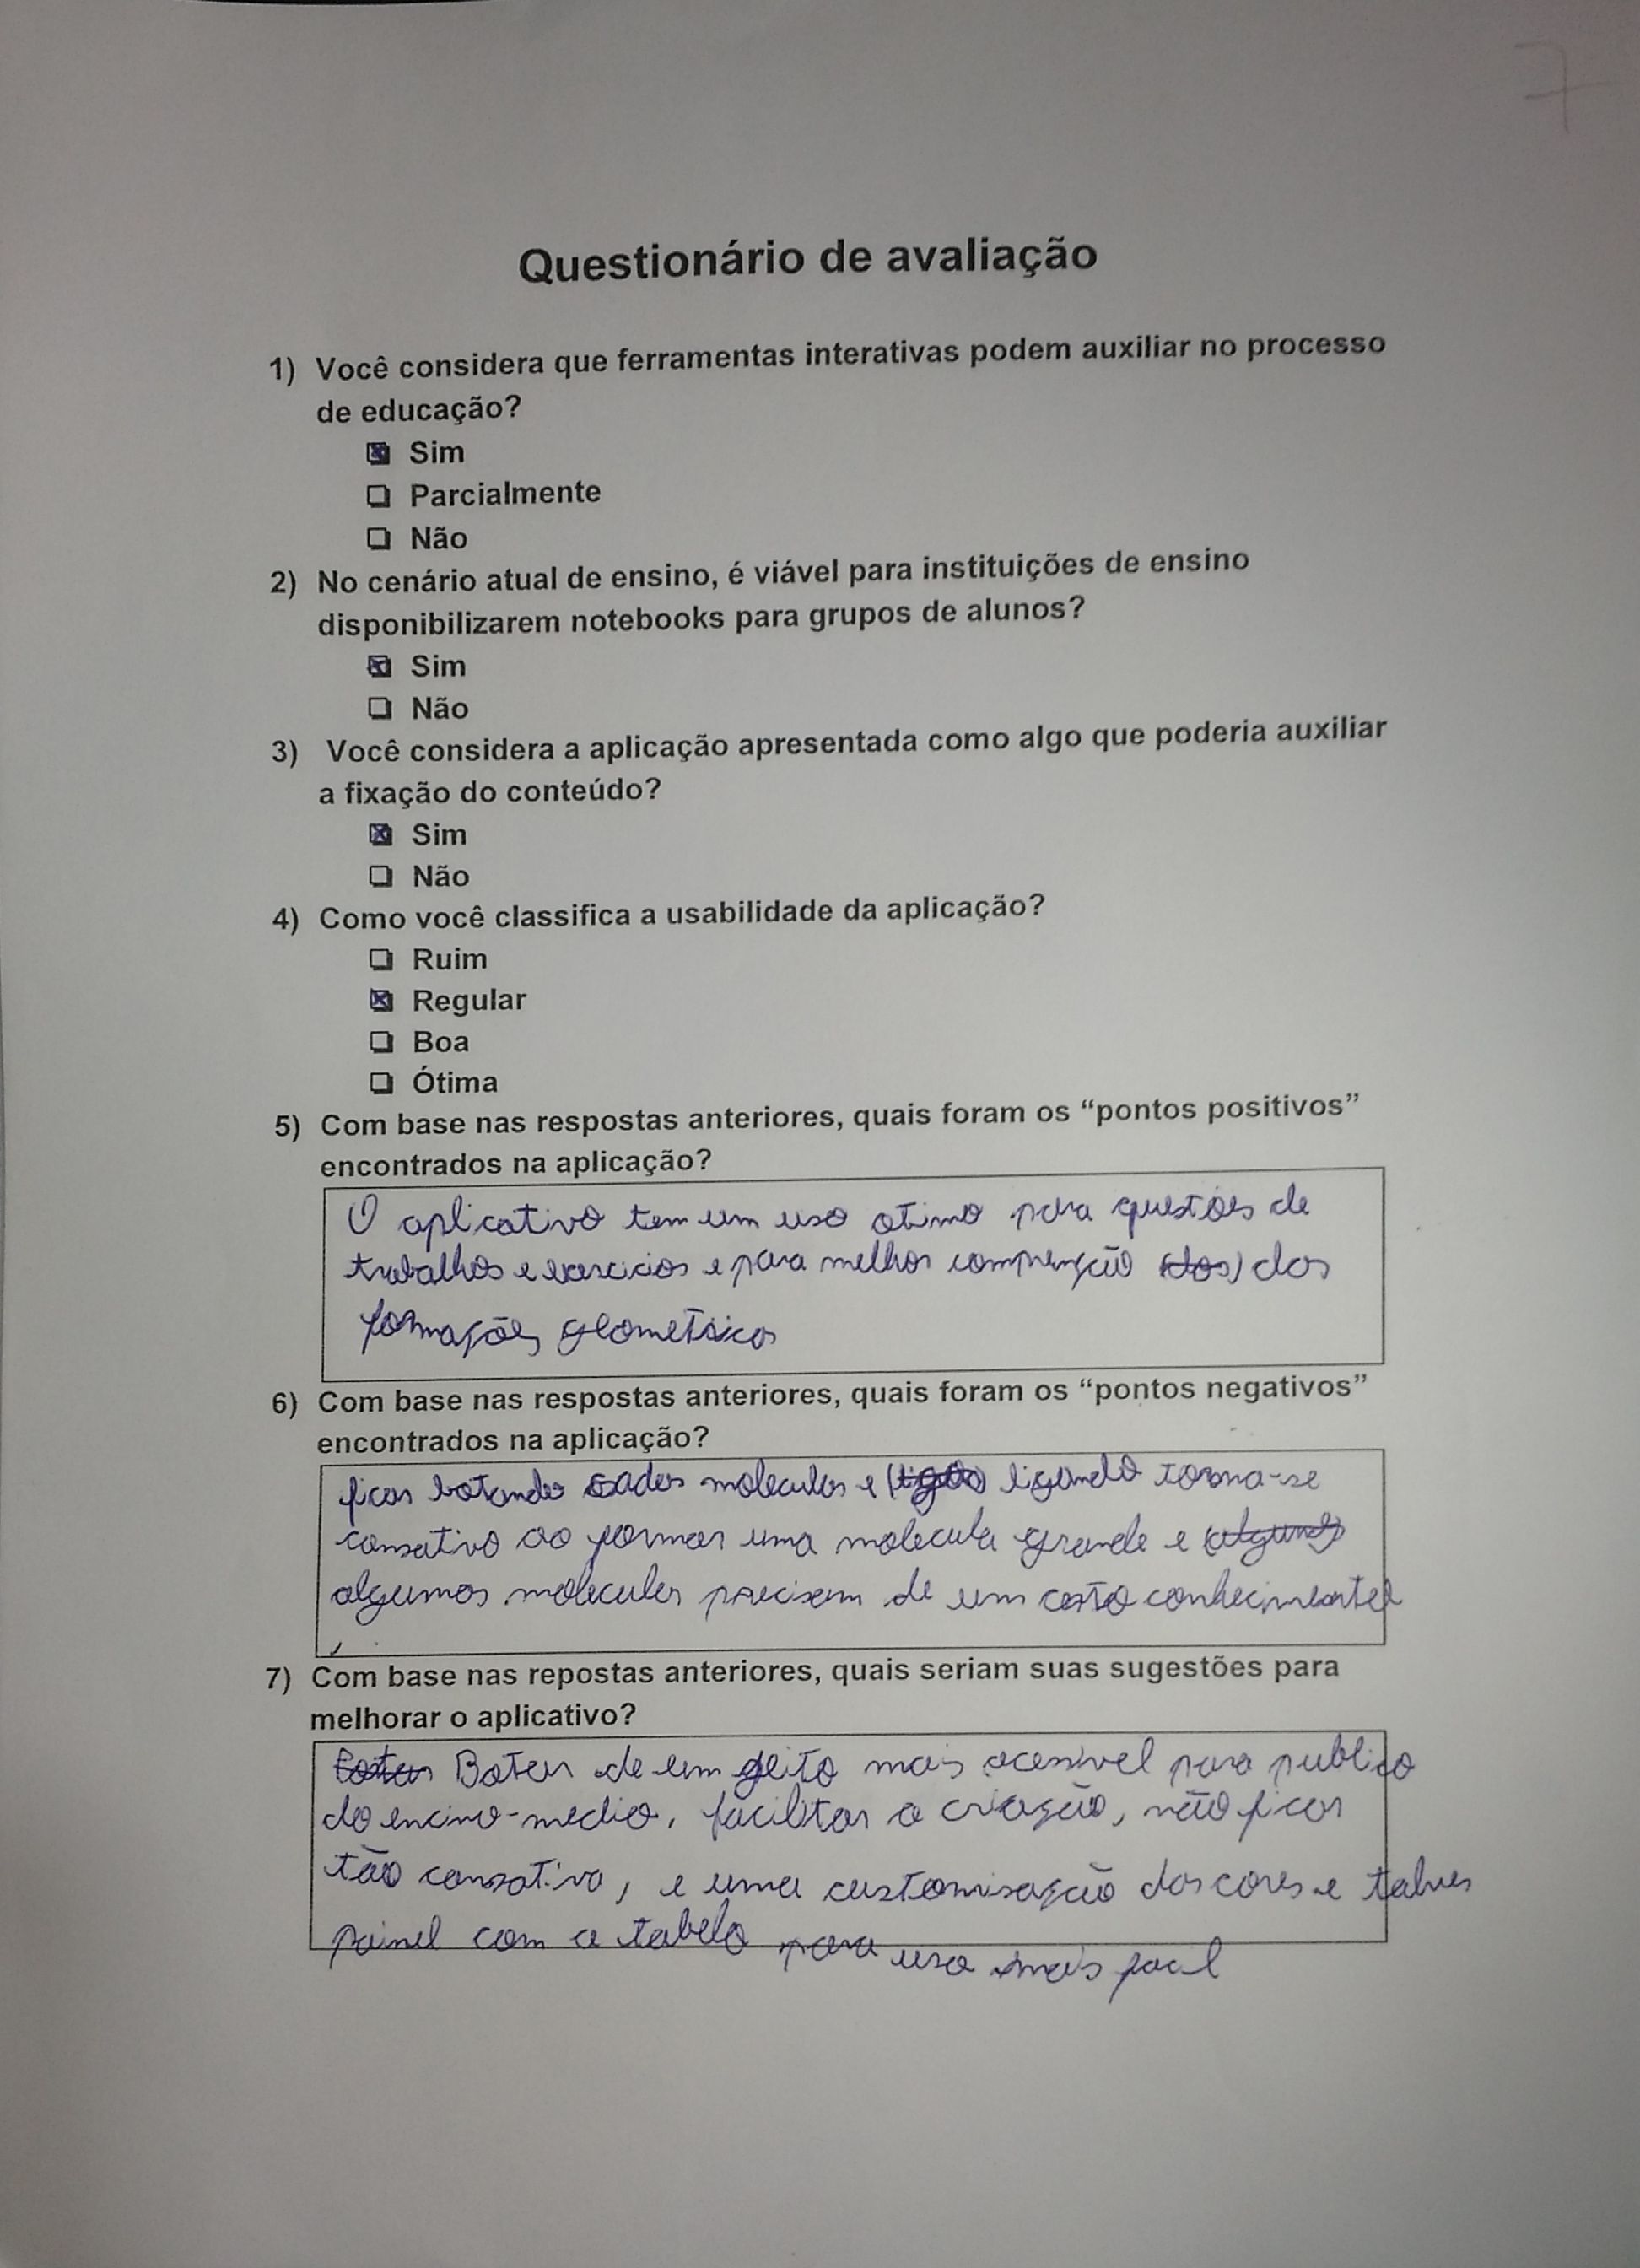 7
Questionário de avaliação
1) Você considera que ferramentas interativas podem auxiliar no processo
de educação?
☒ Sim
☐ Parcialmente
☐ Não
2) No cenário atual de ensino, é viável para instituições de ensino
disponibilizarem notebooks para grupos de alunos?
☒ Sim
☐ Não
3) Você considera a aplicação apresentada como algo que poderia auxiliar
a fixação do conteúdo?
☒ Sim
☐ Não
4) Como você classifica a usabilidade da aplicação?
☐ Ruim
☒ Regular
☐ Boa
☐ Ótima
5) Com base nas respostas anteriores, quais foram os “pontos positivos”
encontrados na aplicação?
O aplicativo tem um uso otimo para questões de
trabalhos e exercicios e para melhor comprenção (dos) das
formações geometricas
6) Com base nas respostas anteriores, quais foram os “pontos negativos”
encontrados na aplicação?
ficar botando cadas moleculas e ligando torna-se
cansativo ao formar uma molecula grande e (algumas)
algumas moleculas precisam de um certo
7) Com base nas repostas anteriores, quais seriam suas sugestões para
melhorar o aplicativo?
Botar de um geito mais acessivel para publico
do encino-medio, facilitar a criação, não ficar
tão cansativo, e uma customisação das cores e talves
painel com a tabela para uso mais facil